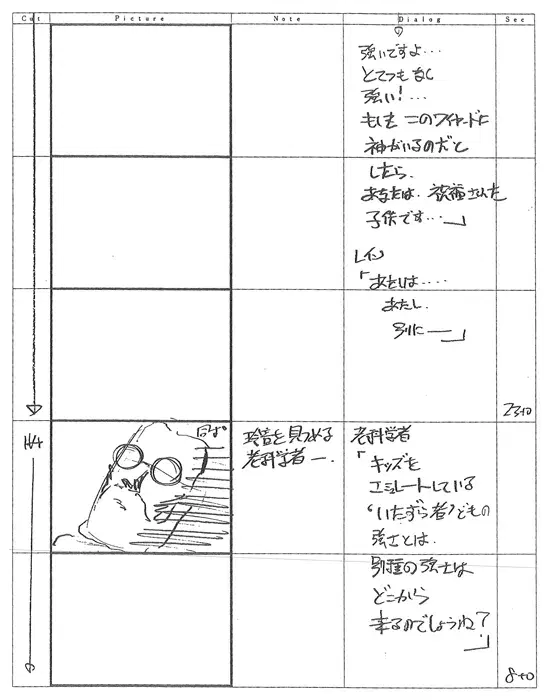 Cut Picture Note Dialog Sec
強いですよ…
とてつもなく
強い!…
もしも このワイヤードに
神がいるのだと
したら、
あなたは、祝福された
子供です…」
レイン
「あたしは‥‥
あたし、
別に──」
23+0
114
同ポ
玲音を見つめる
老科学者─。
老科学者
「キッズを
エミュレートしている
〝いたずら者〟どもの
強さとは、
別種の強さは
どこから
来るのでしょうね?
」
8+0